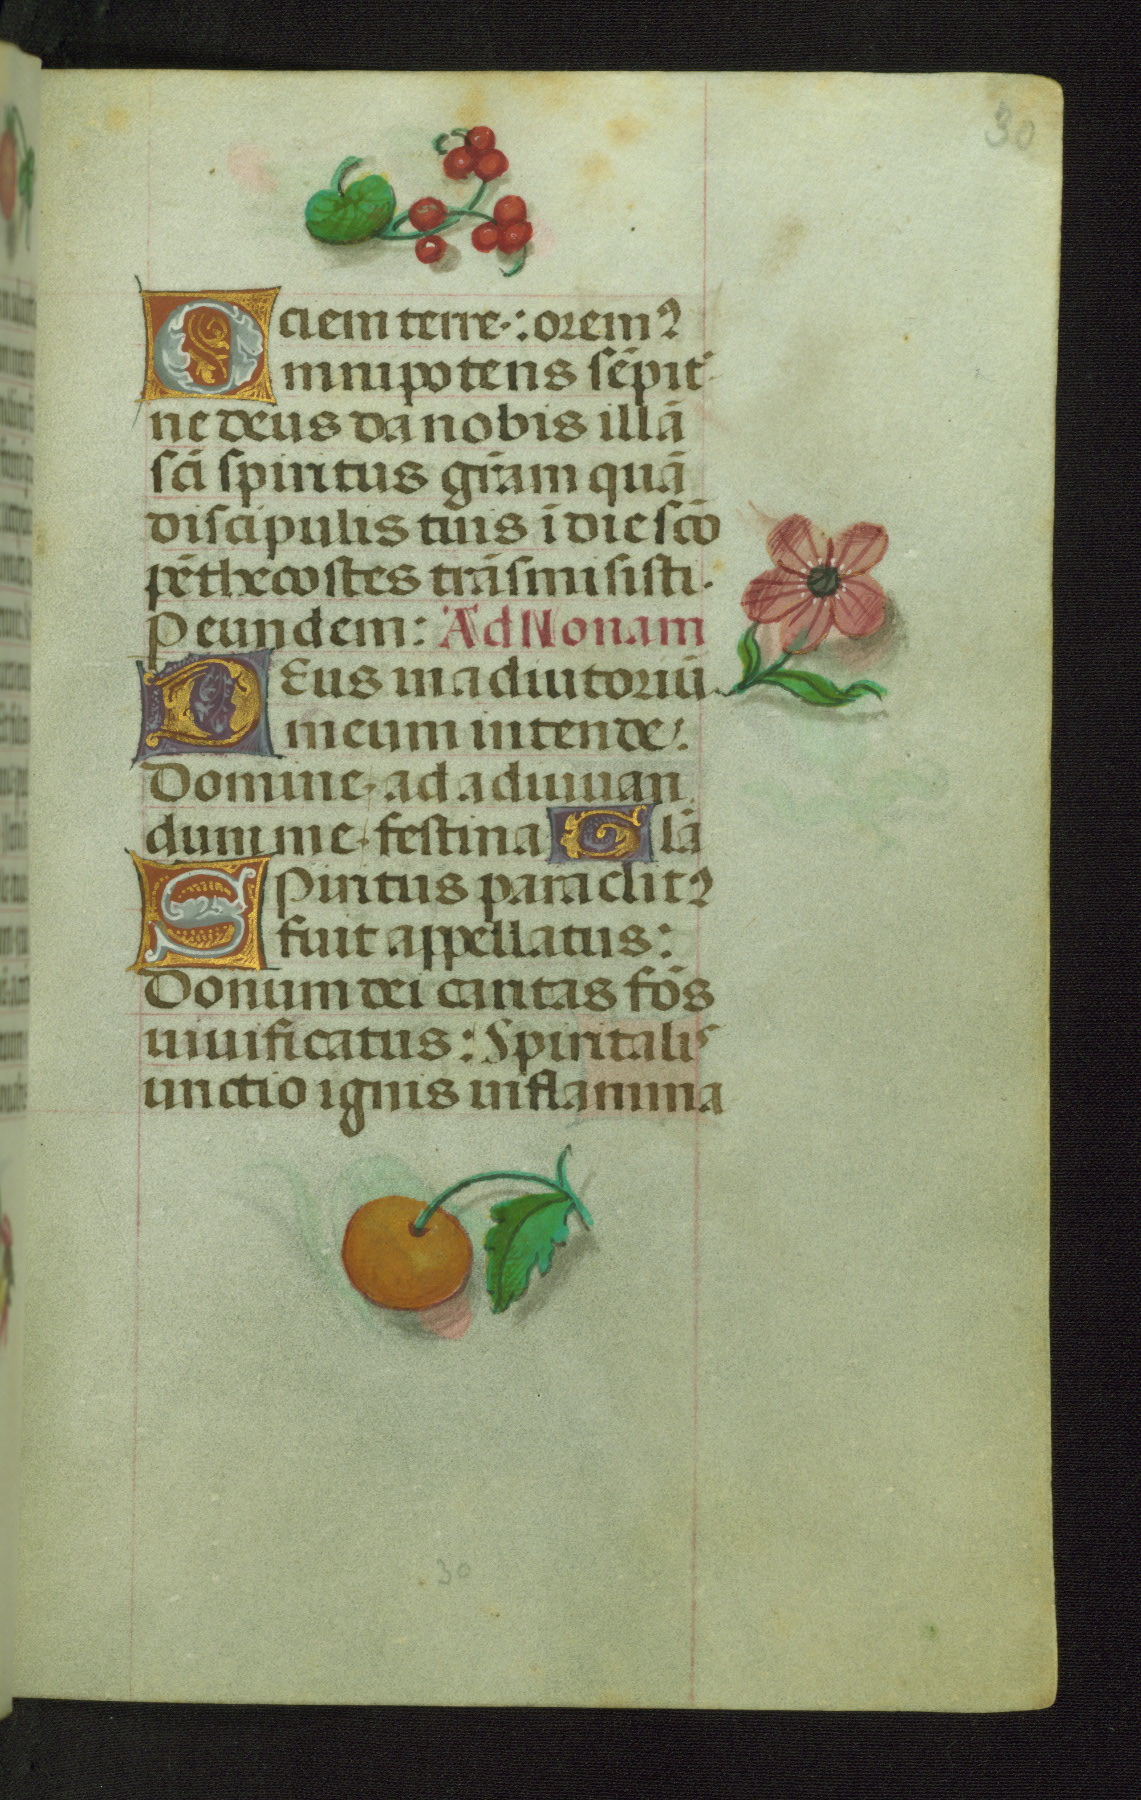 30
ciem terre·: oremꝰ
Omnipotens sẽpit᷑
ne deus da nobis illā
sc̄i spiritus gr̄am quā
discipulis tuis ī die sc̄o
pēthecostes trāsmisisti·
Per eundem: Ad Nonam
DEus in adiutoriū
meum intende:
Domine· ad adiuuan
dum me· festina Glā
SPiritus paraclitꝰ
fuit appellatus:
Donum dei caritas fōs
uiuificatus: Spiritalis
unctio ignis inflamma
30